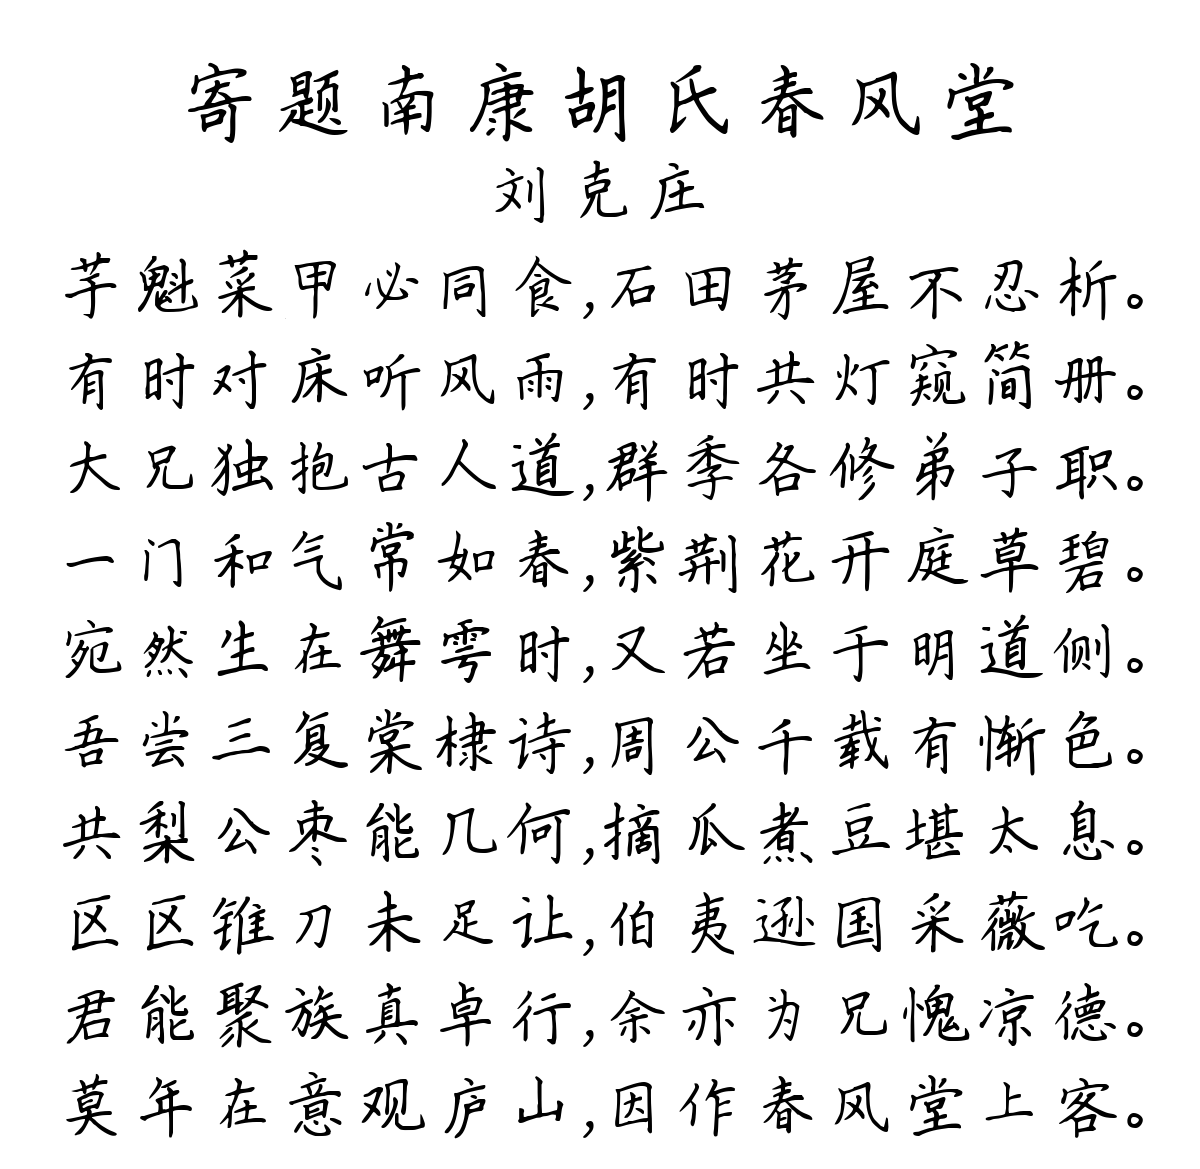 寄题南康胡氏春风堂
刘克庄
芋魁菜甲必同食,石田茅屋不忍析。
有时对床听风雨,有时共灯窥简册。
大兄独抱古人道,群季各修弟子职。
一门和气常如春,紫荆花开庭草碧。
宛然生在舞雩时,又若坐于明道侧。
吾尝三复棠棣诗,周公千载有惭色。
共梨公枣能几何,摘瓜煮豆堪太息。
区区锥刀未足让,伯夷逊国采薇吃。
君能聚族真卓行,余亦为兄愧凉德。
莫年在意观庐山,因作春风堂上客。